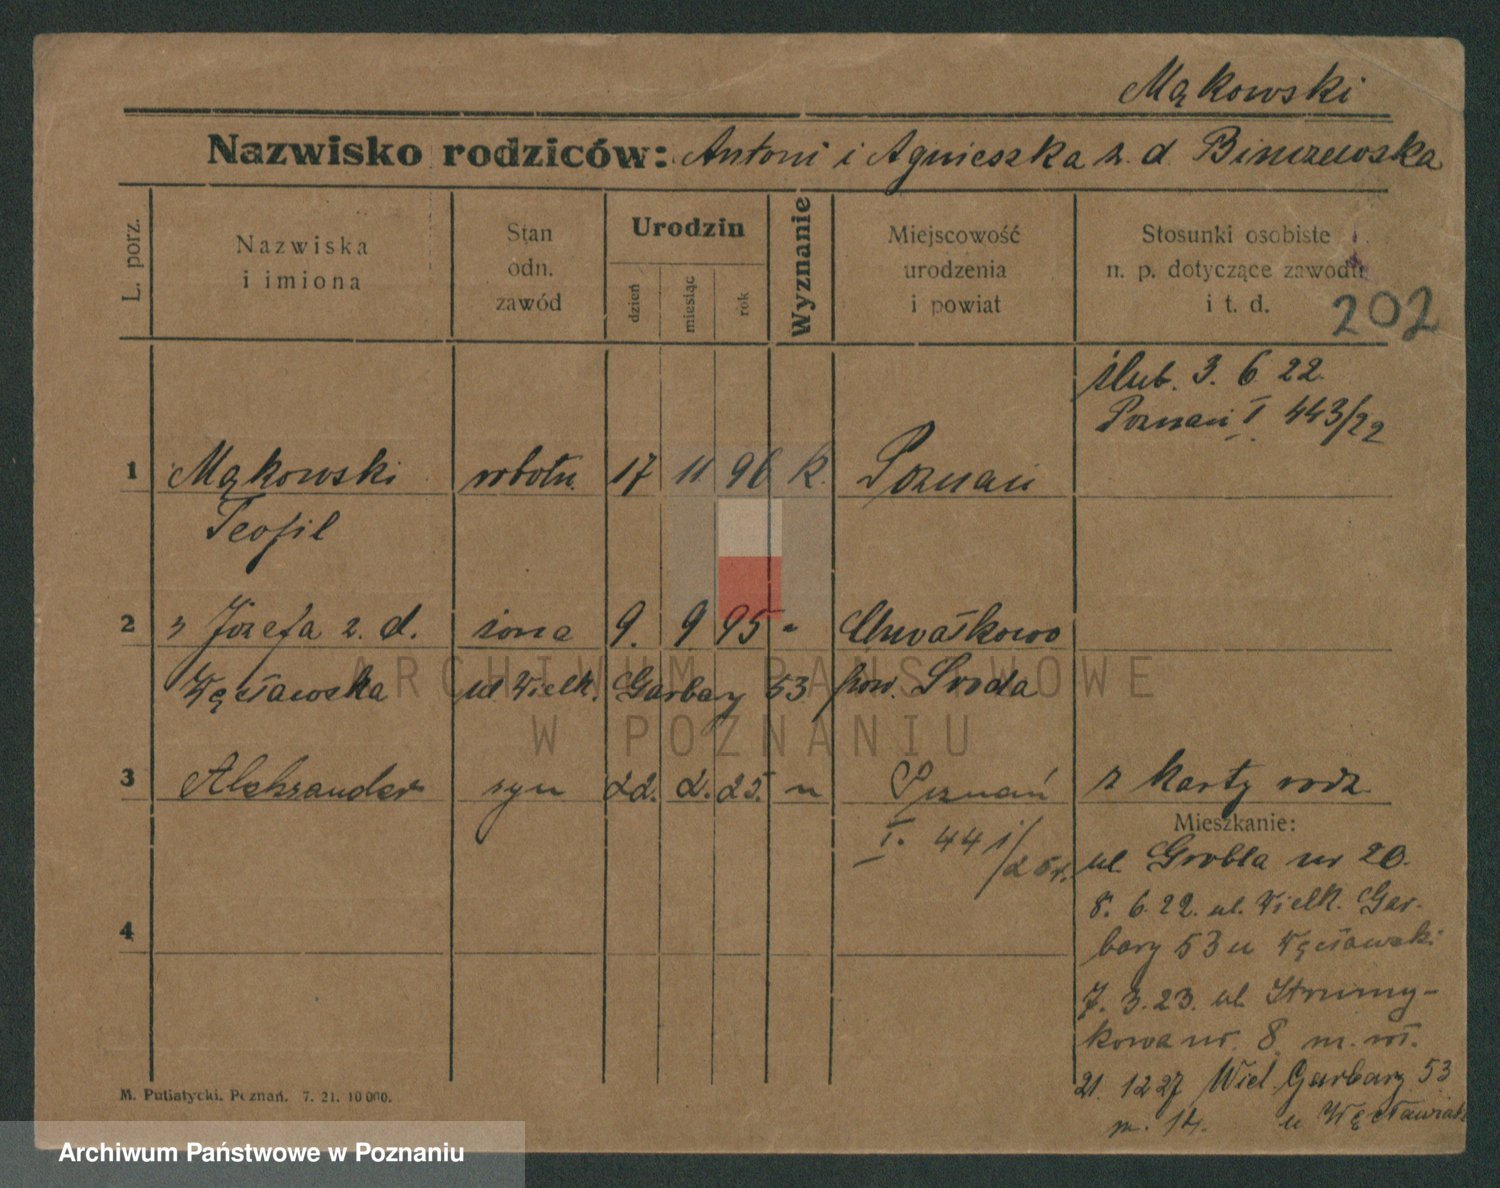 Mąkowski
Nazwisko rodziców: Antoni i Agnieszka z. d. Binczewska
L. porz.
Nazwiska
i imiona
Stan
odn.
zawód
Urodzin
dzień
miesiąc
rok
Wyznanie
Miejscowość
urodzenia
i powiat
Stosunki osobiste
n. p. dotyczące zawodu
i t. d.
202
ślub. 3. 6 22.
Poznań I. 443/22
1 Mąkowski robotn. 17 11 96 k. Poznań
Teofil
2 " Józefa z. d. żona 9. 9 95 " Chwałkowo
Węcławska ul Wielk. Garbary 53 pow. Środa
3 Aleksander syn 22. 2. 25. " Poznań z karty rodz.
I. 441/25r.
Mieszkanie:
ul. Grobla nr 20.
8. 6.22. ul. Wielk. Gar-
bary 53 u Węcławski
7. 3.23. ul. Strumy-
kowa nr. 8 m. wł.
4
21. 12 27 Wiel Garbary 53
m. 14. u
M. Putiatycki, Poznań. 7. 21. 10 000.
ARCHIWUM PAŃSTWOWE
W POZNANIU
Archiwum Państwowe w Poznaniu